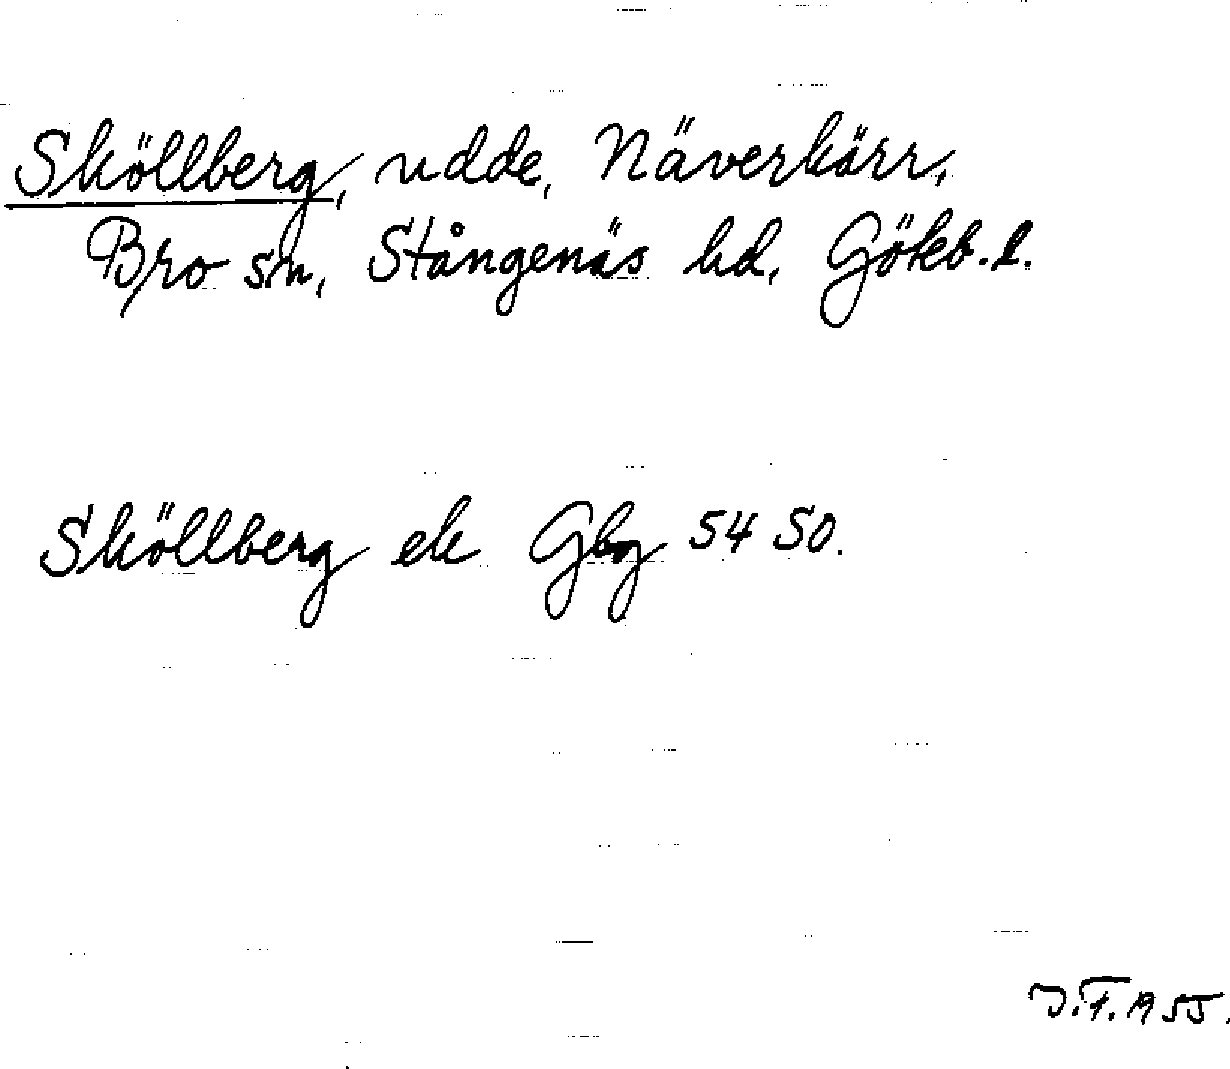 Sköllberg, udde, Näverkärr,
Bro sn, Stångenäs hd, Göteb. l.
Sköllberg ek Gbg 54 50.
J.F. 1955.